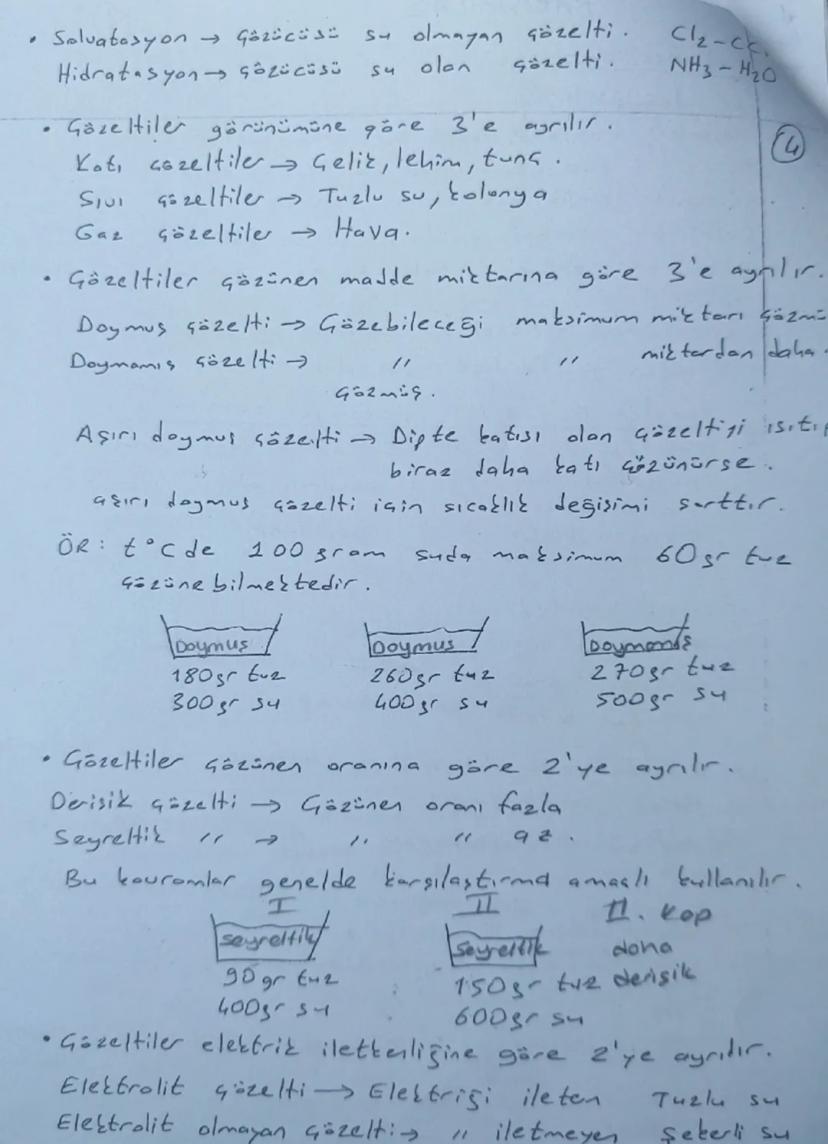 • Solvatasyon → Çözücüsü su olmayan çözelti. Cl2-CCl4
Hidratasyon → çözücüsü su olan çözelti. NH3-H2O
4
• Çözeltiler görünümüne göre 3'e ayrılır.
Katı çözeltiler → Çelik, lehim, tunç.
Sıvı çözeltiler → Tuzlu su, kolonya
Gaz çözeltiler → Hava.
• Çözeltiler çözünen madde miktarına göre 3'e ayrılır.
Doymuş çözelti → Çözebileceği maksimum miktarı çözmü
Doymamış çözelti → " " miktardan daha
çözmüş.
Aşırı doymuş çözelti → Dipte katısı olan çözeltiyi ısıtıp
biraz daha katı çözünürse.
aşırı doymuş çözelti için sıcaklık değişimi şarttır.
ÖR: t°C de 100 gram suda maksimum 60gr tuz
çözünebilmektedir.
Doymuş Doymuş Doymamış
180gr tuz 260gr tuz 270gr tuz
300gr su 400gr su 500gr su
• Çözeltiler çözünen oranına göre 2'ye ayrılır.
Derişik çözelti → Çözünen oranı fazla
Seyreltik " → " " az.
Bu kavramlar genelde karşılaştırma amaçlı kullanılır.
I II II. kap
seyreltik seyreltik daha
90gr tuz 150gr tuz derişik
400gr su 600gr su
• Çözeltiler elektrik iletkenliğine göre 2'ye ayrılır.
Elektrolit çözelti → Elektriği ileten Tuzlu su
Elektrolit olmayan çözelti → " iletmeyen Şekerli su